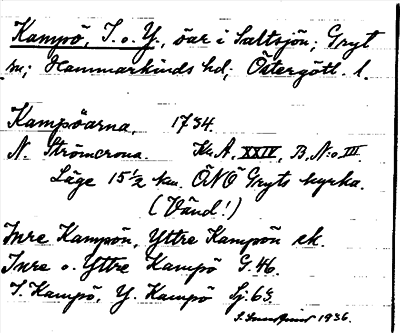 Kampö, I. o. Y., öar i Saltsjön; Gryt
sn; Hammarkinds hd; Östergötl. l.
Kampöarna, 1734.
N. Strömcrona. Kr. A. XXIV, B. N:o III.
Läge 15 1/2 km. ÖNÖ Gryts kyrka.
(Vänd!)
Inre Kampön, Yttre Kampön ek.
Inre o. Yttre Kampö G. 46.
I. Kampö, Y. Kampö Sj. 63.
1936.